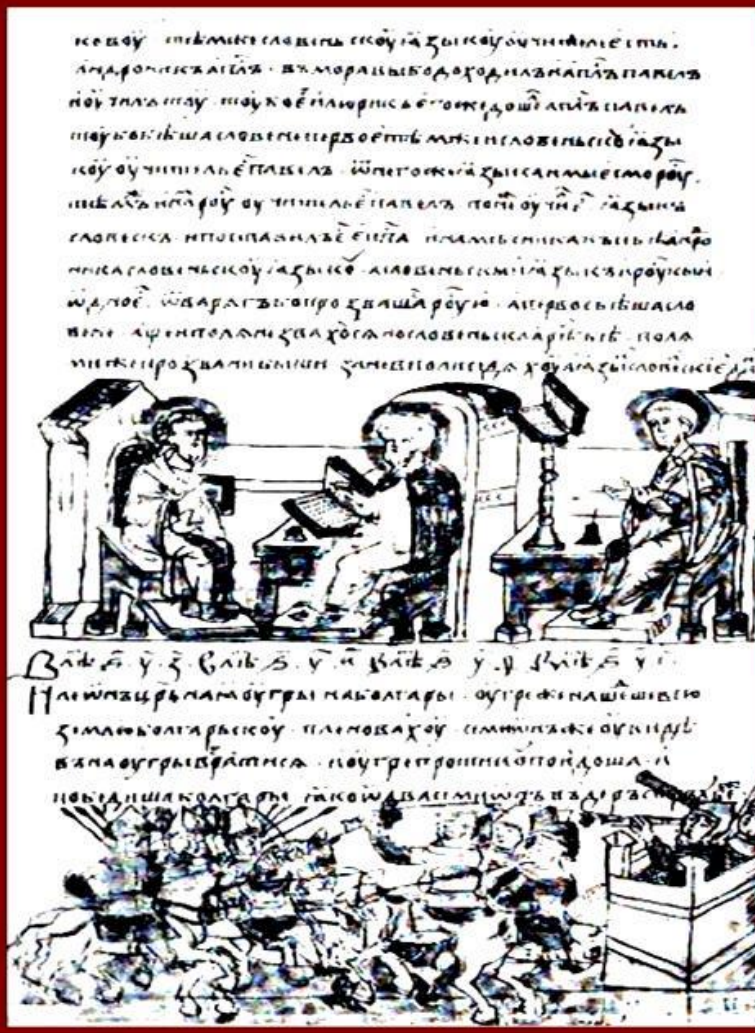 ковоу тѣмже словѣньскоу ꙗзыкоу оучитель єсть.
Андроникъ апⷭ҇лъ · въ моравы бо доходилъ и апⷭ҇лъ павелъ
и оучилъ тоу · тоу бо є илюрикъ єгоже дошеⷧ апⷭ҇лъ павелъ
тоу бо бѣша словене первоє тѣмже и словеньскоу ꙗзы
коу оучитель є павелъ · ѿ негоже ꙗзыка и мы єсмо роуⷭ.
тѣмъ и роуⷭ оучитель є павелъ понеⷤ оучиⷧ ꙗзыкъ
словескъ · и поставилъ є єпⷭ҇па и намѣсника андро
ника словеньскоу ꙗзыкоу · а словеньскии ꙗзыкъ и роукыи
ѡдноє · ѿ варягъ бо прозваша роуⷭю · а первоє бѣша сло
вене · аще и полѧне звахоусѧ но словеньскаꙗ рѣч бѣ · полѧ
ми же прозвани быши зане в поли сѣдѧхоу ꙗзыⷦ словескиⷨ є
В лѣⷮ ѕ҃ · у҃ · з҃ · В лѣⷮ ѕ҃ · у҃ и҃ В лѣⷮ ѕ҃ у҃ В лѣⷮ ѕ҃ у҃ і҃ ·
И леѡнъ цр҃ь наꙗ оугры на болгары · оугре же нашеⷣше всю
землю болгарьскоу · пленовахоу · симиѡнъ же оувидѣ
въ на оугры вратисѧ · и оугре противоу поидоша · и
победиша болгары · ꙗко ѡдва симиѡнъ въ деръстръ